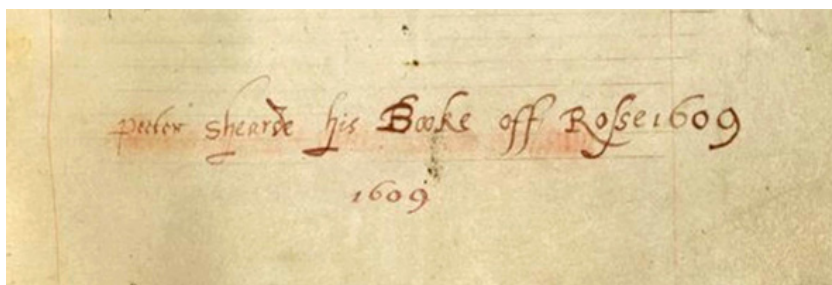 peeter shearde his Booke off Rosse 1609
1609